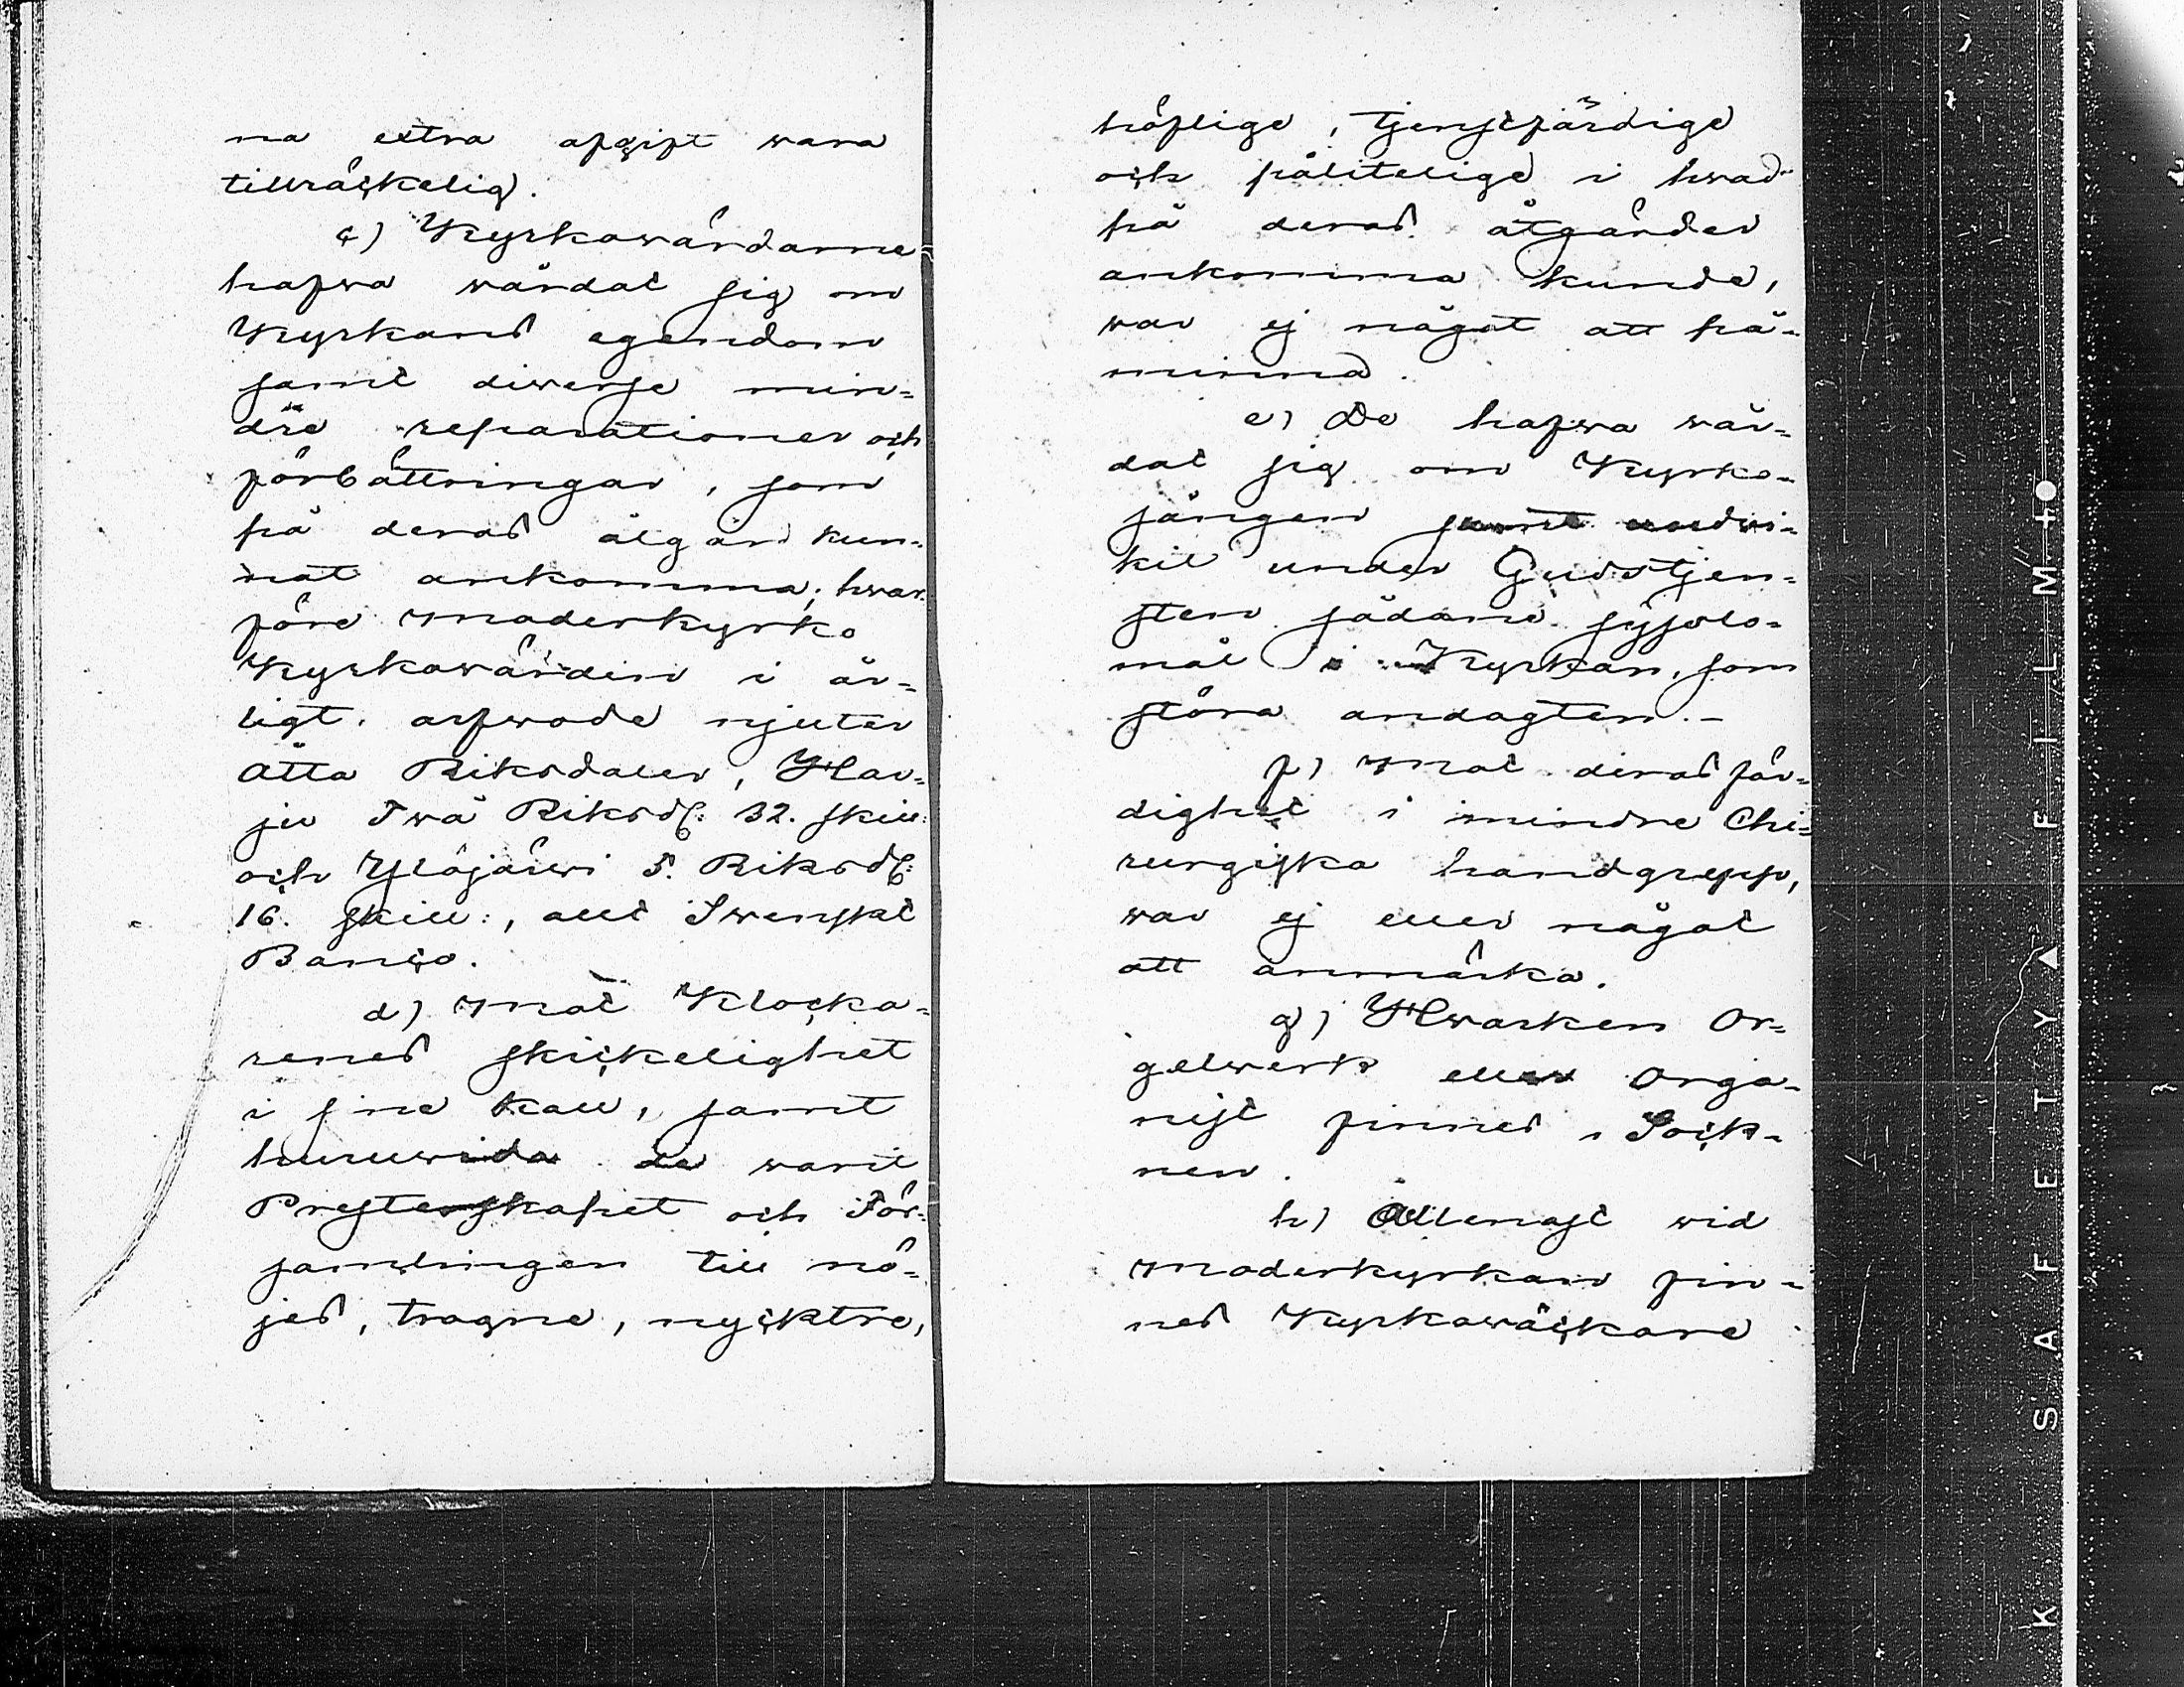 na extra afgift wara
tillräckelig.
c) Kyrkowärdarne
hafwa wårdat sig om
Kyrkans egendom
samt diverse min-
dre reparationer och
förbättringar, som
på deras åtgärd kun-
nat ankomma; hwar-
före Moderkyrko
Kyrkowärden i år-
ligt arfwode njuter
åtta Riksdaler, Har-
ju Twå Riksd: 32. skill:
och Ylöjärwi 5. Riksd:
16. skill:, allt Swenskt
Banco.
d) Mot Klocka-
renes skickelighet
i sine kall, samt
huruwida de warit
Presterskapet och För-
samlingen till nö-
jes, trogne, nycktre,
höflige, tjenstfärdige
och pålitelige i hwad
på deras åtgärder
ankomma kunde,
war ej något att på-
minna.
e) De hafwa wår-
dat sig om Kyrko-
sången samt undwi-
kit under Gudstjen-
sten sådane syslo-
mål i Kyrkan, som
störa andagten.-
f) Mot deras fär-
dighet i mindre Chi-
rurgiska handgrepp,
war ej eller något
att anmärka.
g) Hwarken Or-
gelwerk eller Orga-
nist finnes i Sock-
nen.
h) Allenast wid
Moderkyrkan fin-
nes Kyrkowäckare
K SAFETY FILM